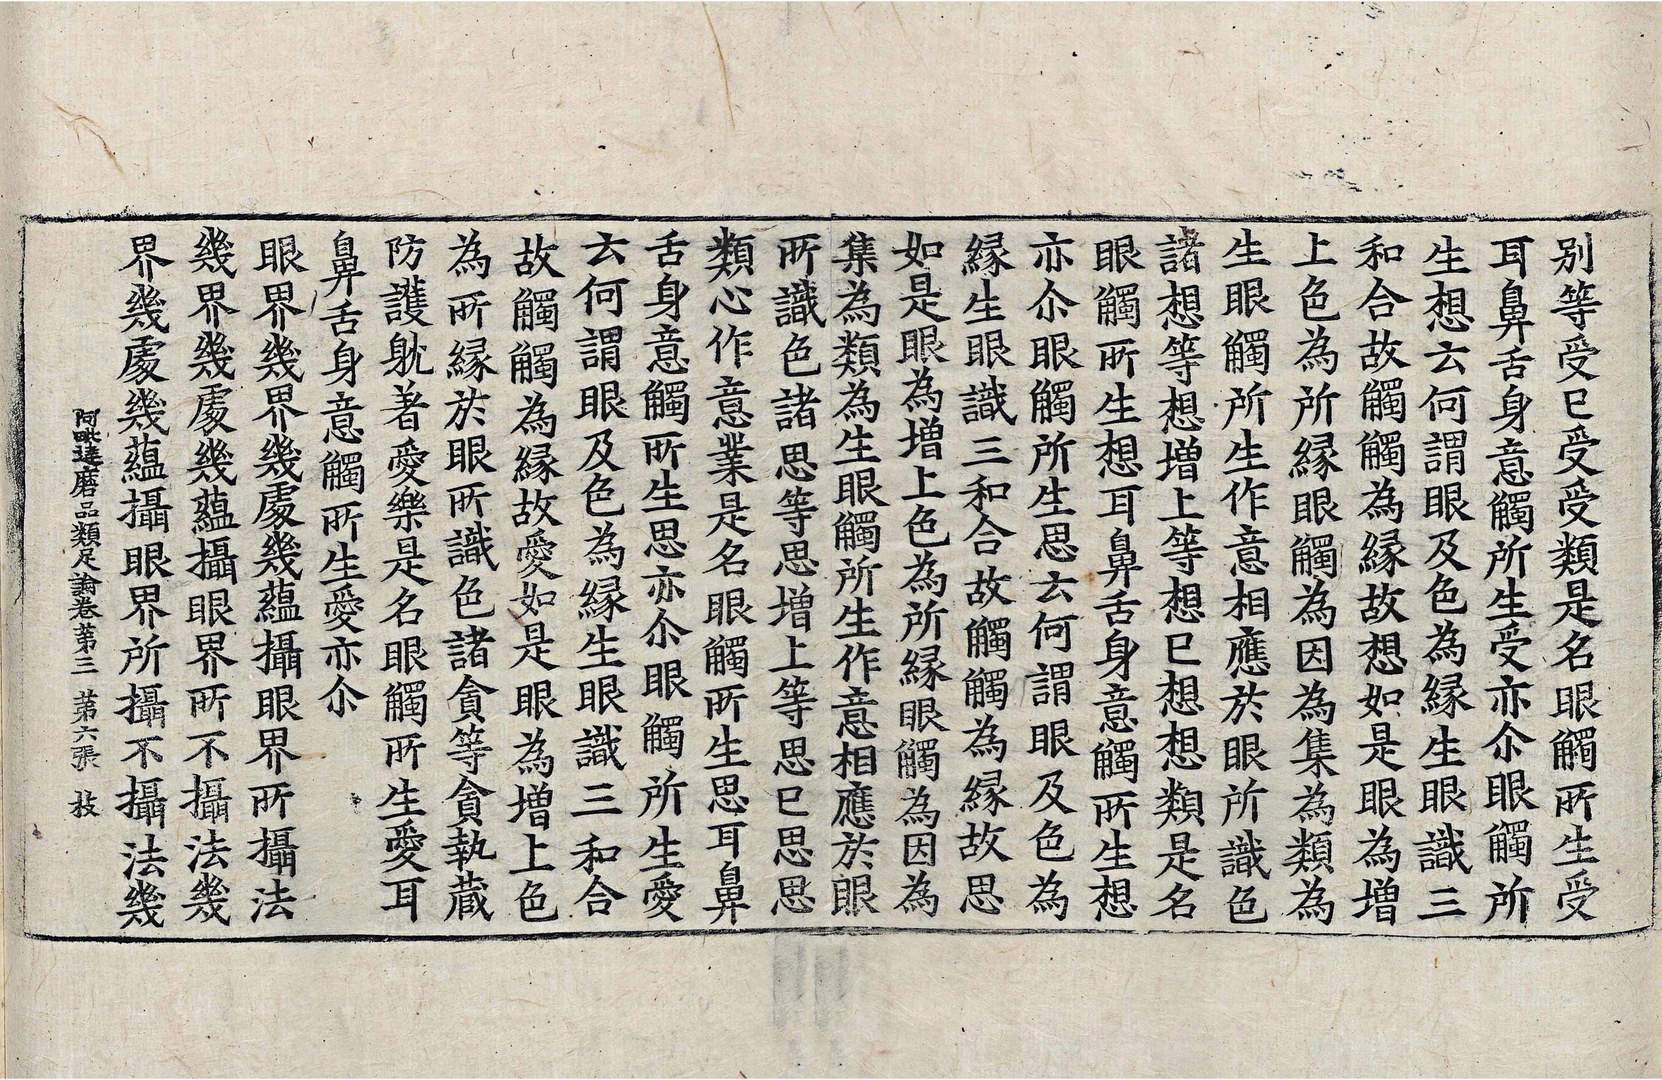 別等受已受受類是名眼觸所生受
耳鼻舌身意觸所生受亦尒眼觸所
生想云何謂眼及色為縁生眼識三
和合故觸觸為縁故想如是眼為增
上色為所縁眼觸為因為集為類為
生眼觸所生作意相應於眼所識色
諸想等想增上等想已想想類是名
眼觸所生想耳鼻舌身意觸所生想
亦尒眼觸所生思云何謂眼及色為
縁生眼識三和合故觸觸為縁故思
如是眼為增上色為所縁眼觸為因為
集為類為生眼觸所生作意相應於眼
所識色諸思等思增上等思已思思
類心作意業是名眼觸所生思耳鼻
舌身意觸所生思亦尒眼觸所生愛
云何謂眼及色為縁生眼識三和合
故觸觸為縁故愛如是眼為增上色
為所縁於眼所識色諸貪等貪執藏
防護躭著愛樂是名眼觸所生愛耳
鼻舌身意觸所生愛亦尒
眼界幾界幾處幾蘊攝眼界所攝法
幾界幾處幾蘊攝眼界所不攝法幾
界幾處幾蘊攝眼界所攝不攝法幾
阿毗達磨品類足論卷苐三 苐六張 㧞